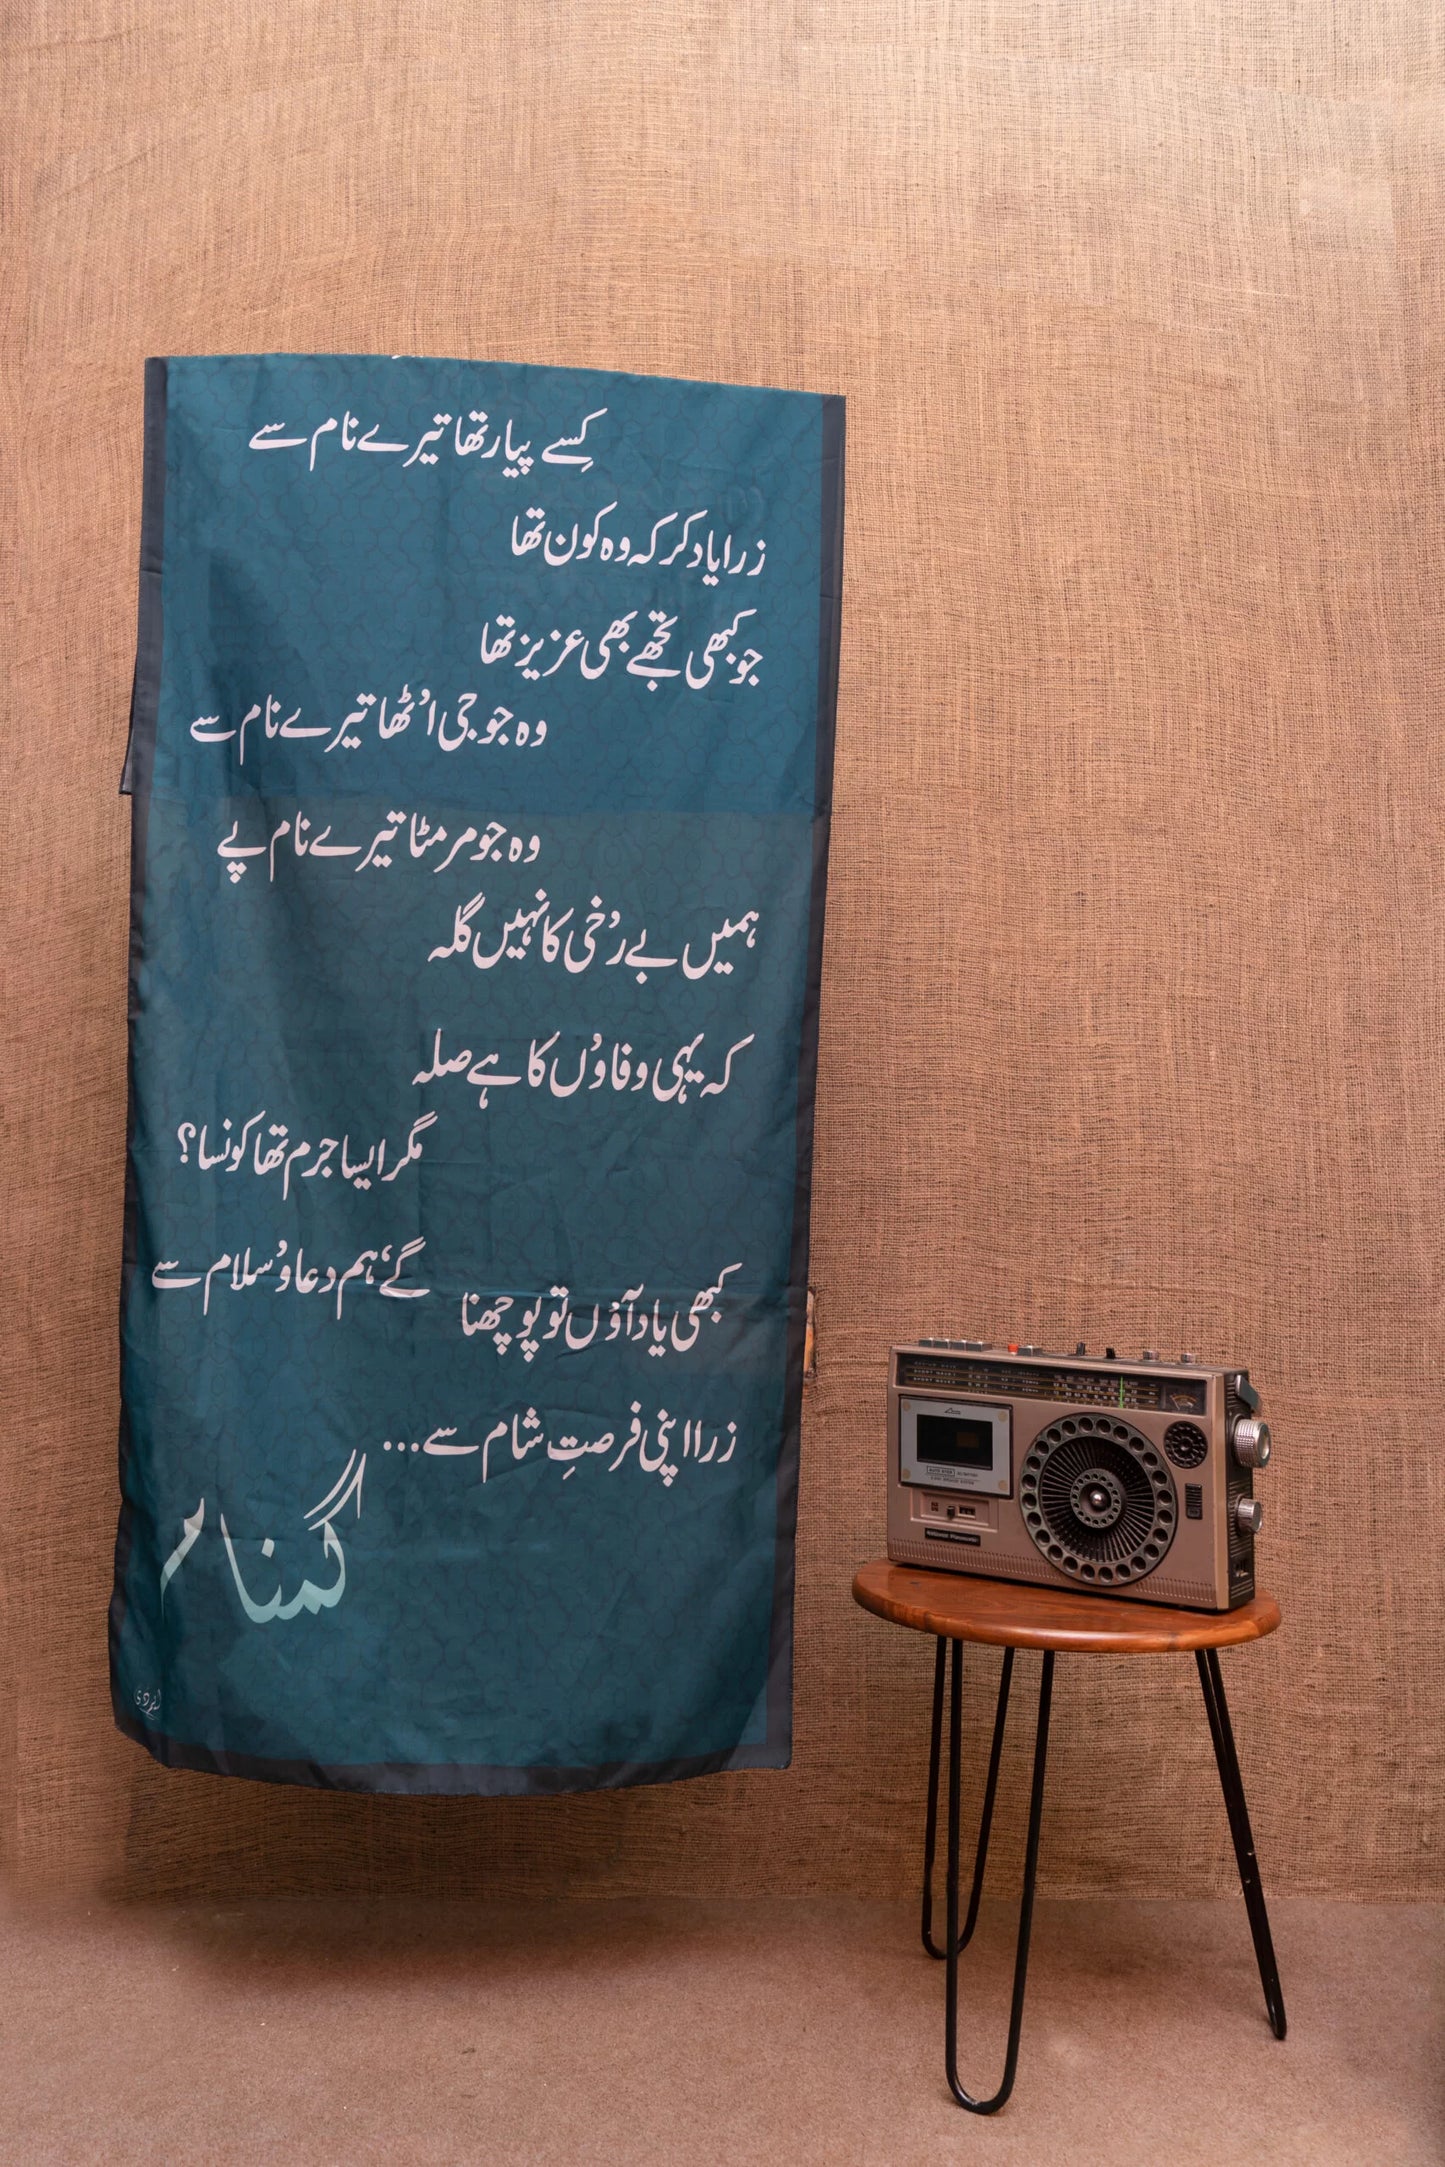 کِسے پیار تھا تیرے نام سے
زرا یاد کر کہ وہ کون تھا
جو کبھی تجھے بھی عزیز تھا
وہ جو جی اُٹھا تیرے نام سے
وہ جو مر مٹا تیرے نام پے
ہمیں بے رُخی کا نہیں گلہ
کہ یہی وفاوُں کا ہے صلہ
مگر ایسا جرم تھا کونسا؟
گے، ہم دعا وُ سلام سے
کبھی یاد آوُں تو پوچھنا
زرا اپنی فرصتِ شام سے...
گمنام
National Panasonic
AUTO STOP